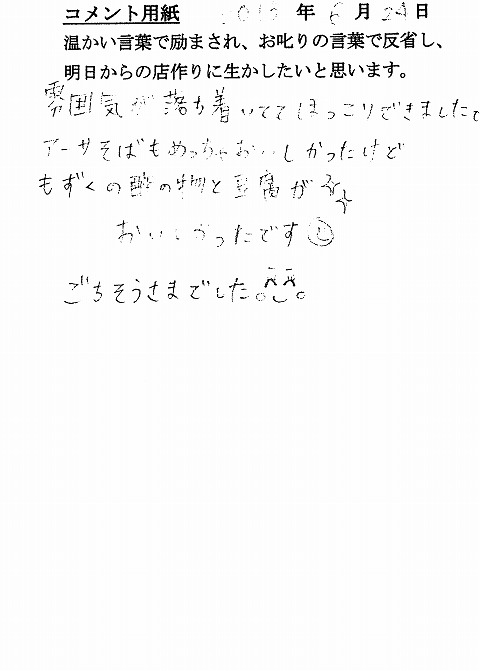 コメント用紙 2012 年 6 月 24 日
温かい言葉で励まされ、お叱りの言葉で反省し、
明日からの店作りに生かしたいと思います。
雰囲気が落ち着いててほっこりできました。
アーサそばもめっちゃおいしかったけど
もずくの酢の物と豆腐が
おいしかったです
ごちそうさまでした。